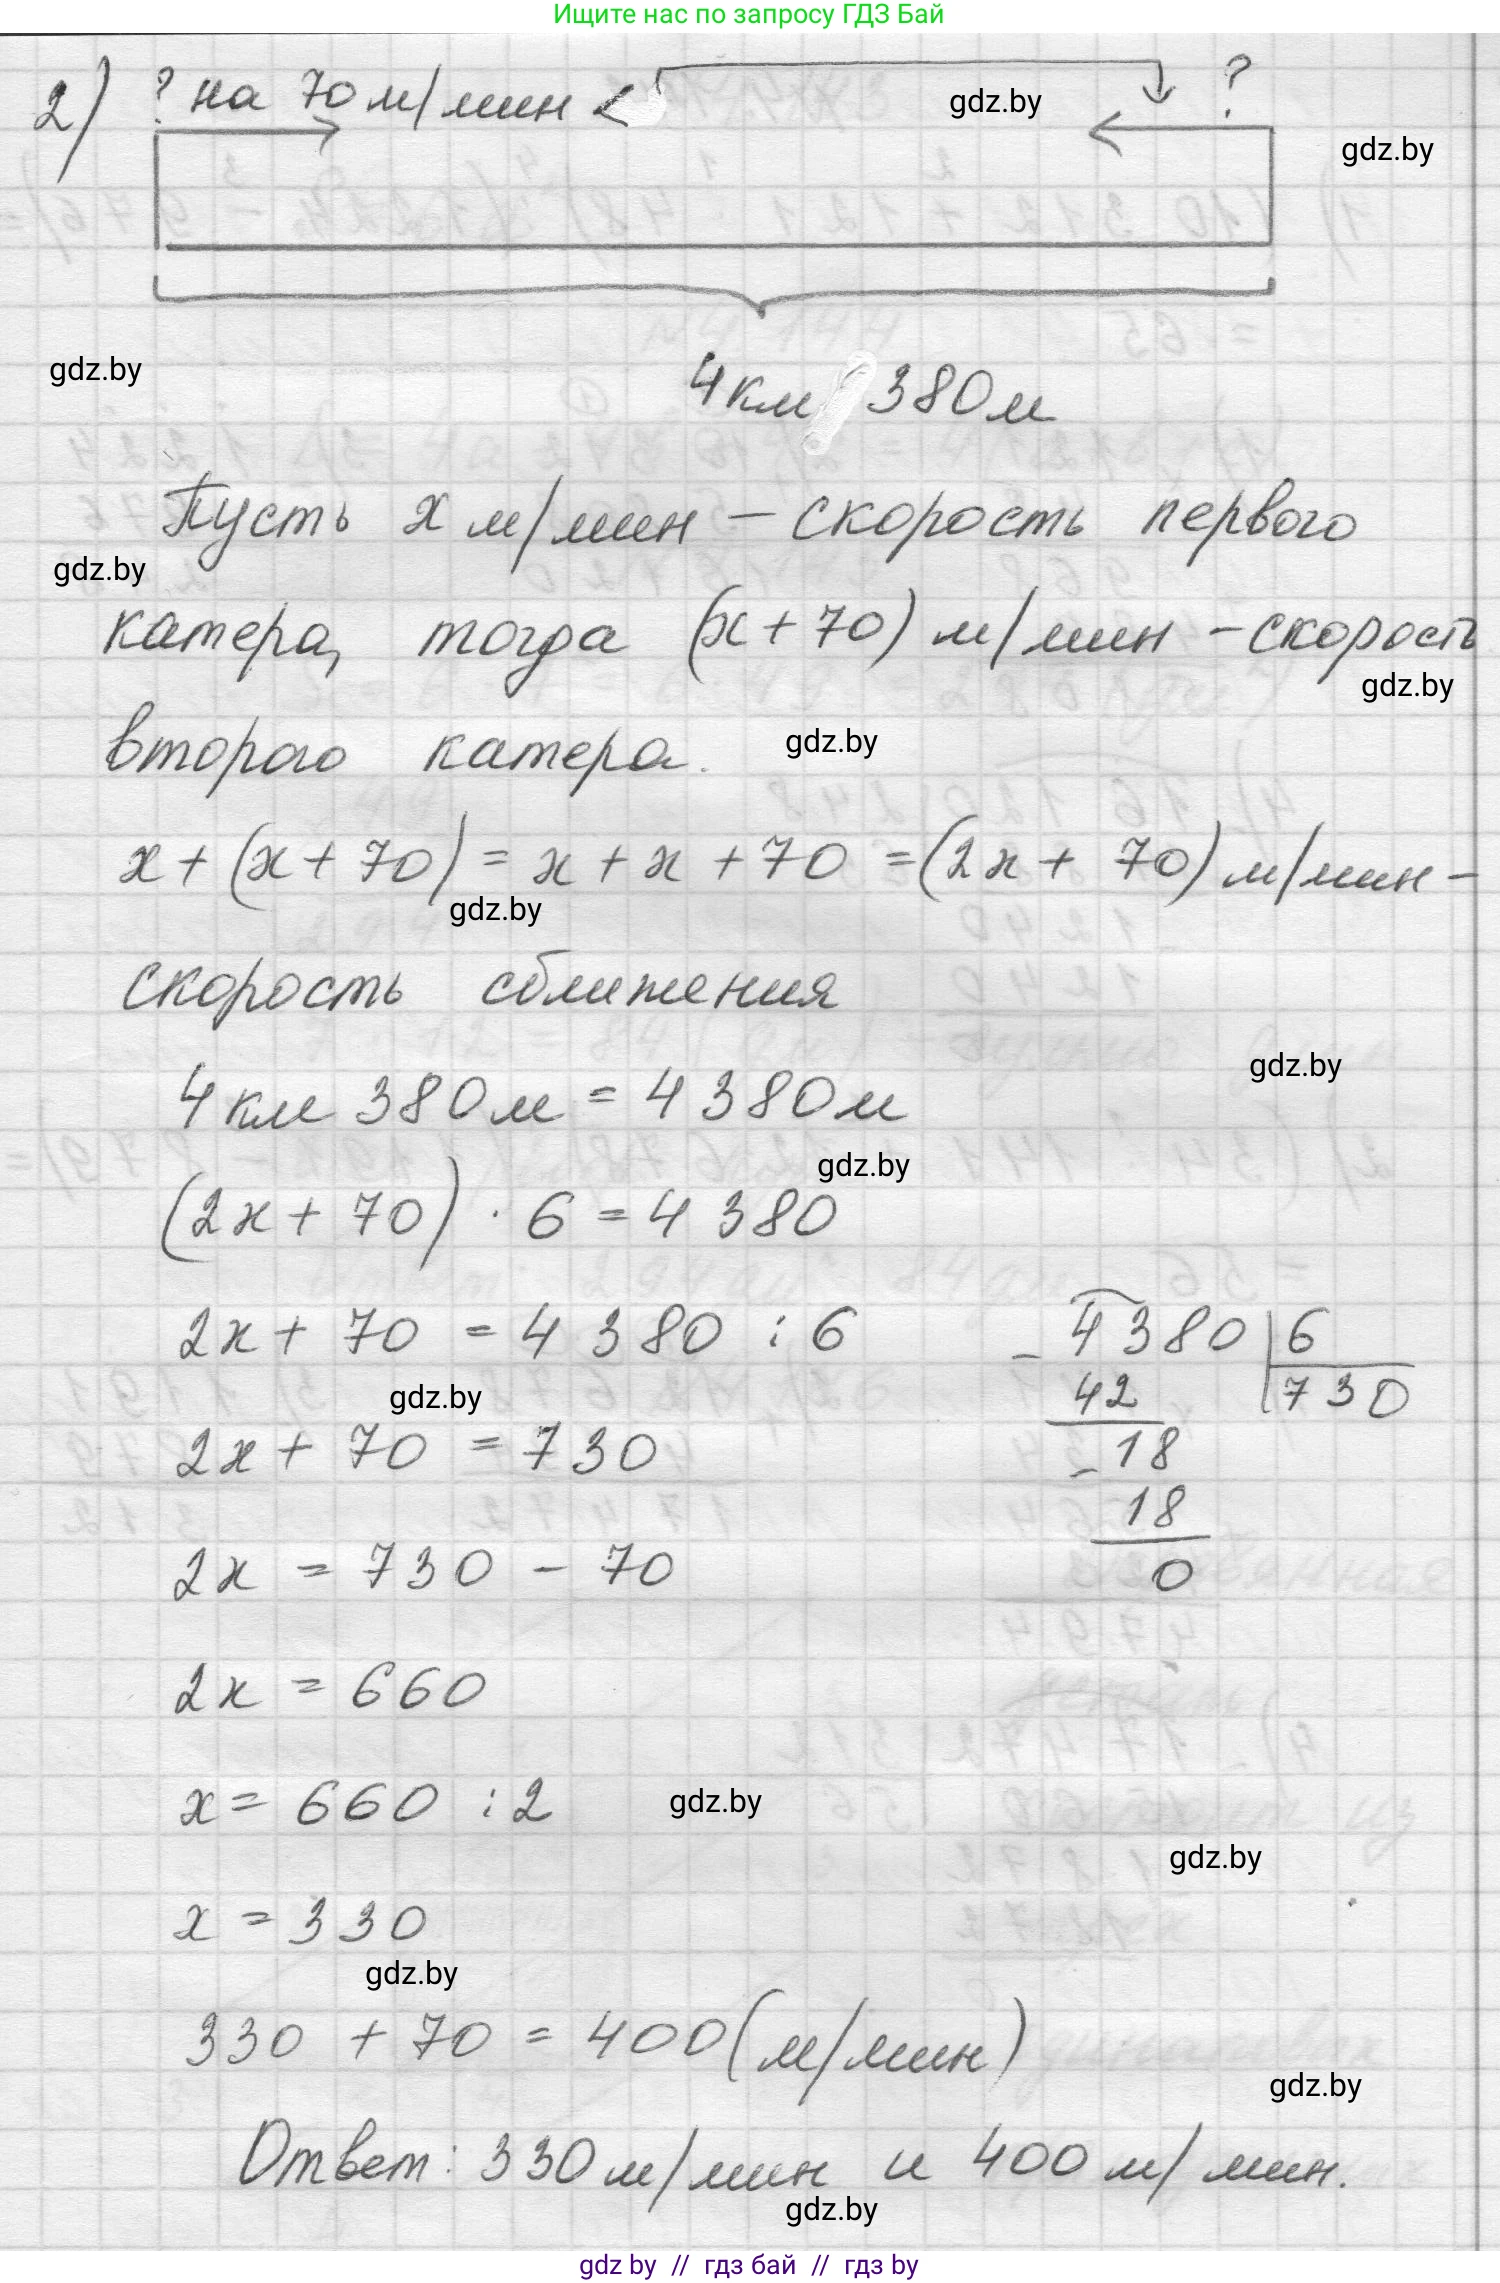 Ищите нас по запросу ГДЗ Бай
2) ? на 70 м/мин < ?
gdz.by
gdz.by
gdz.by
4 км 380 м
Пусть x м/мин – скорость первого
gdz.by
катера, тогда (x + 70) м/мин – скорость
gdz.by
второго катера.
gdz.by
x + (x + 70) = x + x + 70 = (2x + 70) м/мин –
gdz.by
скорость сближения
gdz.by
4 км 380 м = 4 380 м
gdz.by
(2x + 70) · 6 = 4 380
2x + 70 = 4 380 : 6
gdz.by
2x + 70 = 730
2x = 730 – 70
2x = 660
x = 660 : 2
x = 330
– 4380 | 6
42 730
– 18
18
0
gdz.by
gdz.by
gdz.by
330 + 70 = 400 (м/мин)
gdz.by
Ответ: 330 м/мин и 400 м/мин.
gdz.by
gdz by // гдз бай // гдз by